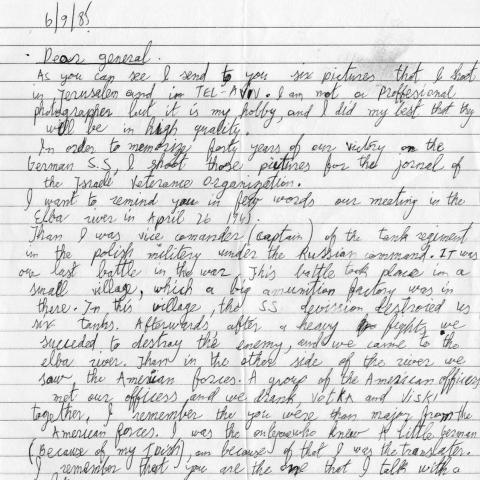 6/9/85
· Dear general.
As you can see I send to you six pictures that I shoot
in Jerusalem and in TEL-AVIV. I am not a proffesional
photographer but it is my hobby, and I did my best that they
will be in high quality.
In order to memorize forty years of our victory on the
German S.S, I shoot those pictures for the jornal of
the Israeli Veterance Organization.
I want to remind you in few words our meeting in the
Elba river in April 26 1945.
Than I was vice comander (captain) of the tank regiment
in the polish military under the Russian command. IT was
our last battle in the war. This battle took place in a
small village, which a big amunition factory was in
there. In this village, the S.S. devision destroied us
six tanks. Afterwards, after a heavy fight, we
succided to destroy the enemy, and we came to the
elba river. Than in the other side of the river we
saw the American forces. A group of the American officers
met our officers and we drank, VOtKA and ViSKi
together, I remember the you were than major from the
American forces. I was the only who knew A little German
(Because of my Idish), an because of that I was the translater.
I remember that you are the one that I talk with a